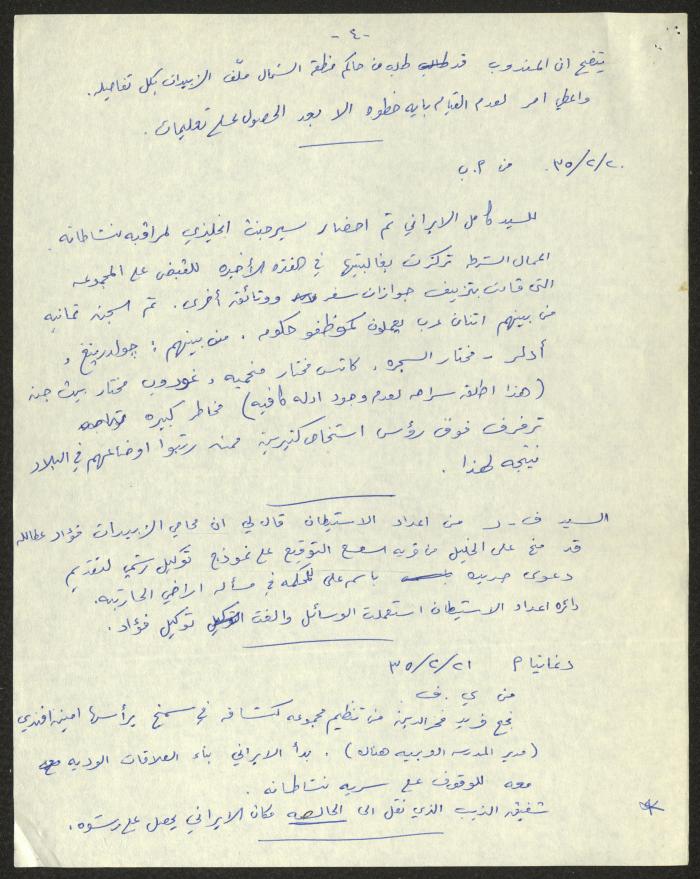 - ٤ -
يتضح ان المندوب قد طلب من حاكم منطقة الشمال ملّف الزبيدات بكل تفاصيله.
واعطي امر لعدم القيام بايه خطوه الا بعد الحصول على تعليمات.
٣٥/٢/٢٠. من م.ب
للسيد كامل الايراني تم احضار سيرجنت انجليزي لمراقبه نشاطاته.
اعمال الشرطه تركزت بغالبيتها في الفتره الأخيره للقبض على المجموعه
التي قامت بتزييف جوازات سفر ووثائق أخرى. تم سجن ثمانيه
من بينهم اثنان عرب يعملون كموظفو حكومه. من بينهم: جولدرينغ،
أدلر - مختار السجره، كاتس مختار منحميه، وغوروب مختار بيت جن
(هذا اطلق سراحه لعدم وجود ادله كافيه) مخاطر كبيره
ترفرف فوق رؤس اشخاص كثيرين ممن رتبوا اوضاعهم في البلاد
نتيجه لهذا.
السيد ف - د من اعداد الاستيطان قال لي ان محامي الزبيدات فؤاد عطالله
قد على الخليل من قريه التوقيع على نموذج توكيل رسمي لتقديم
دعوى جديده باسم على للمحكمه في مسألة اراضي الحارثيه.
دائره اعداد الاستيطان استعملت الوسائل والغت توكيل فؤاد.
دغانيا م ٣٥/٢/٢١
من ي. ف
نجح فريد فخرالدين من تنظيم مجموعه كشافه في سمخ يرأسها امين افندي
(مدير المدرسه العربيه هناك). بدأ الايراني بناء العلاقات الوديه
معه للوقوف على سريه نشاطاته.
شفيق الذيب الذي نقل الى الخالصه مكان الايراني يحصل على رشوه.